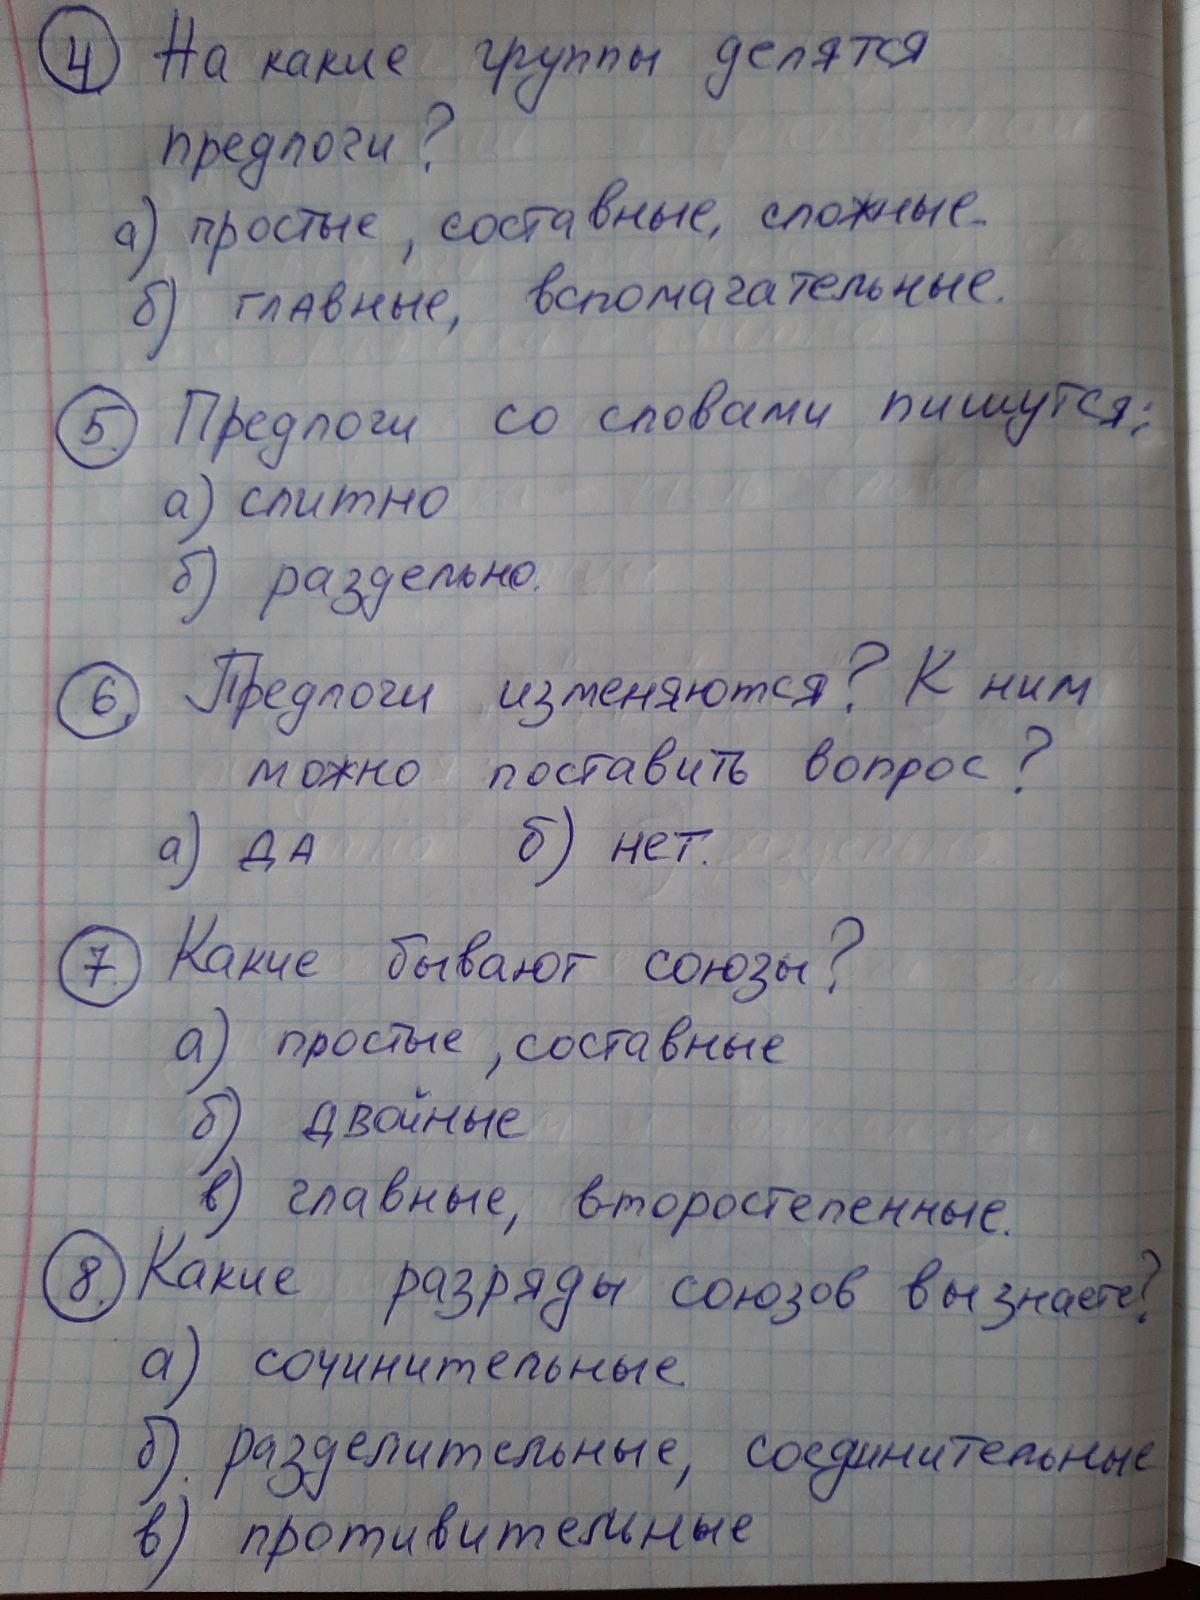 4 На какие группы делятся
предлоги?
а) простые, составные, сложные.
б) главные, вспомагательные.
5. Предлоги со словами пишутся:
а) слитно
б) раздельно.
6. Предлоги изменяются? К ним
можно поставить вопрос?
а) ДА б) нет.
7. Какие бывают союзы?
а) простые, составные
б) двойные
в) главные, второстепенные.
8. Какие разряды союзов вы знаете?
а) сочинительные.
б). разделительные, соединительные
в) противительные